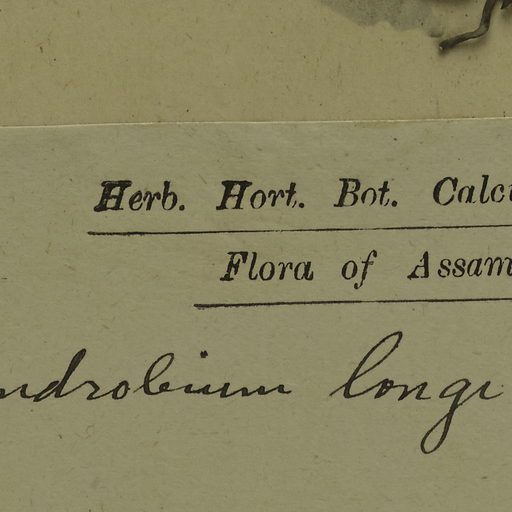 Herb. Hort. Bot. Calc
Flora of Assam
ndrobium longi